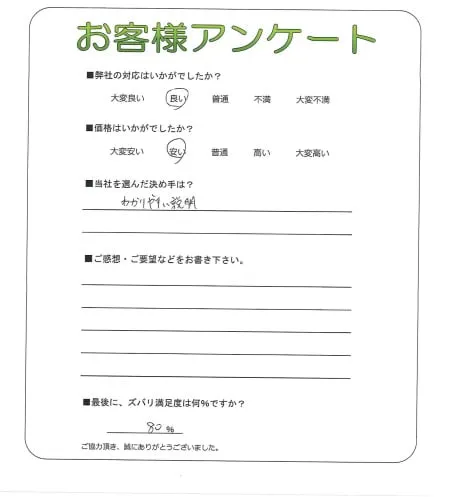 お客様アンケート
■弊社の対応はいかがでしたか？
大変良い 良い 普通 不満 大変不満
■価格はいかがでしたか？
大変安い 安い 普通 高い 大変高い
■当社を選んだ決め手は？
わかりやすい説明
■ご感想・ご要望などをお書き下さい。
■最後に、ズバリ満足度は何%ですか？
80 %
ご協力頂き、誠にありがとうございました。